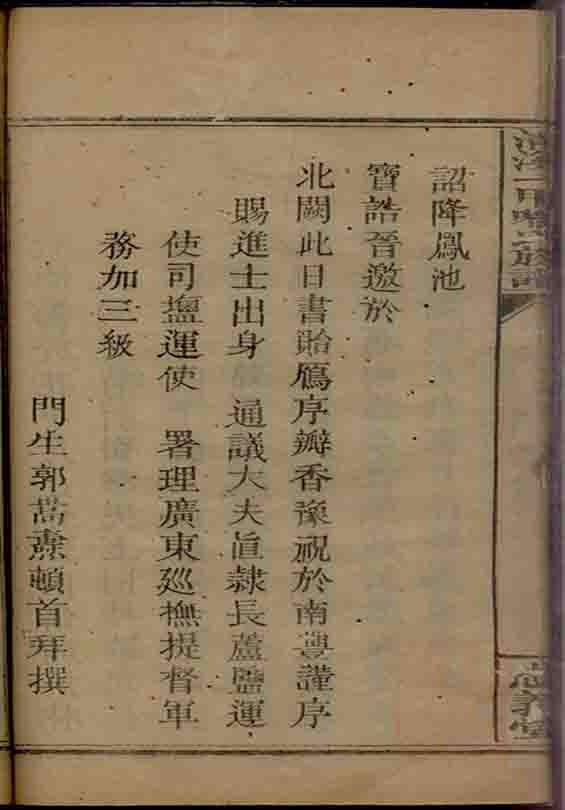 族譜
詔降鳳池
寶誥晉邀於
北闕此日書貽鴈序瓣香豫祝於南豐謹序
賜進士出身 通議大夫直隸長蘆鹽運
使司鹽運使 署理廣東廵撫提督軍
務加三級
門生郭嵩燾頓首拜撰